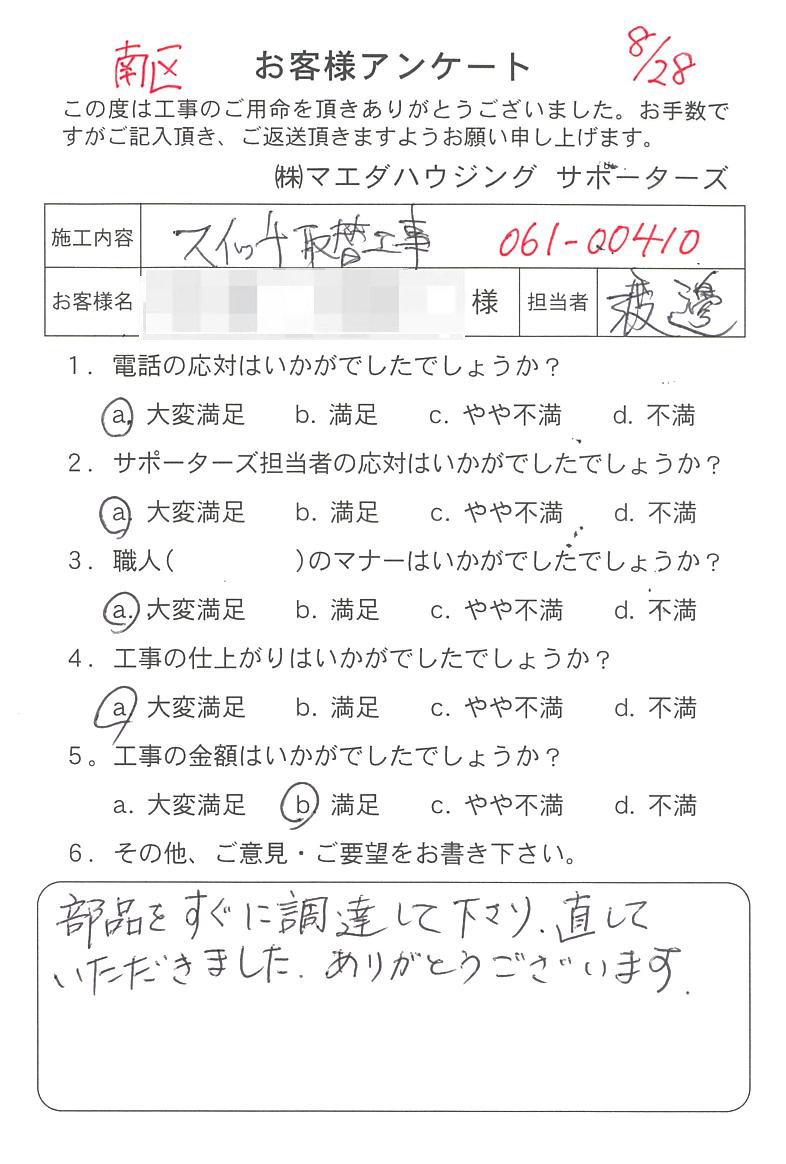 南区 お客様アンケート 8/28
この度は工事のご用命を頂きありがとうございました。お手数で
すがご記入頂き、ご返送頂きますようお願い申し上げます。
㈱マエダハウジング サポーターズ
施工内容 スイッチ取替工事 061-00410
お客様名 様 担当者 渡邊
1. 電話の応対はいかがでしたでしょうか?
a. 大変満足 b. 満足 c. やや不満 d. 不満
2. サポーターズ担当者の応対はいかがでしたでしょうか?
a. 大変満足 b. 満足 c. やや不満 d. 不満
3. 職人( )のマナーはいかがでしたでしょうか?
a. 大変満足 b. 満足 c. やや不満 d. 不満
4. 工事の仕上がりはいかがでしたでしょうか?
a. 大変満足 b. 満足 c. やや不満 d. 不満
5。工事の金額はいかがでしたでしょうか?
a. 大変満足 b. 満足 c. やや不満 d. 不満
6. その他、ご意見・ご要望をお書き下さい。
部品をすぐに調達して下さり、直して
いただきました。ありがとうございます。